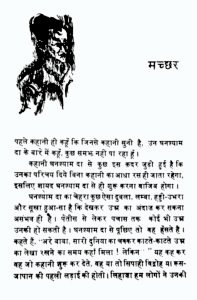 मच्छर
पहले कहानी ही कहूं कि जिनसे कहानी सुनी है, उन घनश्याम
दा के बारे में कहूं, कुछ समझ नहीं पा रहा हूं।
कहानी घनश्याम दा से कुछ इस कदर जुड़ी हुई है कि
उनका परिचय दिये बिना कहानी का आधा रस ही जाता रहेगा,
इसलिए शायद घनश्याम दा से ही शुरू करना वाजिब होगा।
घनश्याम दा का चेहरा कुछ ऐसा दुबला, लम्बा, हड्डी-उभरा
और सूखा हुआ-सा है कि देखकर उम्र का अंदाज कर सकना
असंभव ही है। पैंतीस से लेकर पचास तक कोई भी उम्र
उनकी हो सकती है। घनश्याम दा से पूछिए तो वह हंसते हैं।
कहते हैं, "अरे बाबा, सारी दुनिया का चक्कर काटते-काटते उम्र
का लेखा रखने का समय कहां मिला! लेकिन" यह कह कर
वह जो कहानी शुरू कर देते, वह या तो सिपाही विद्रोह या रूस-
जापान की पहली लड़ाई की होती। लिहाजा हम लोगों ने उनकी